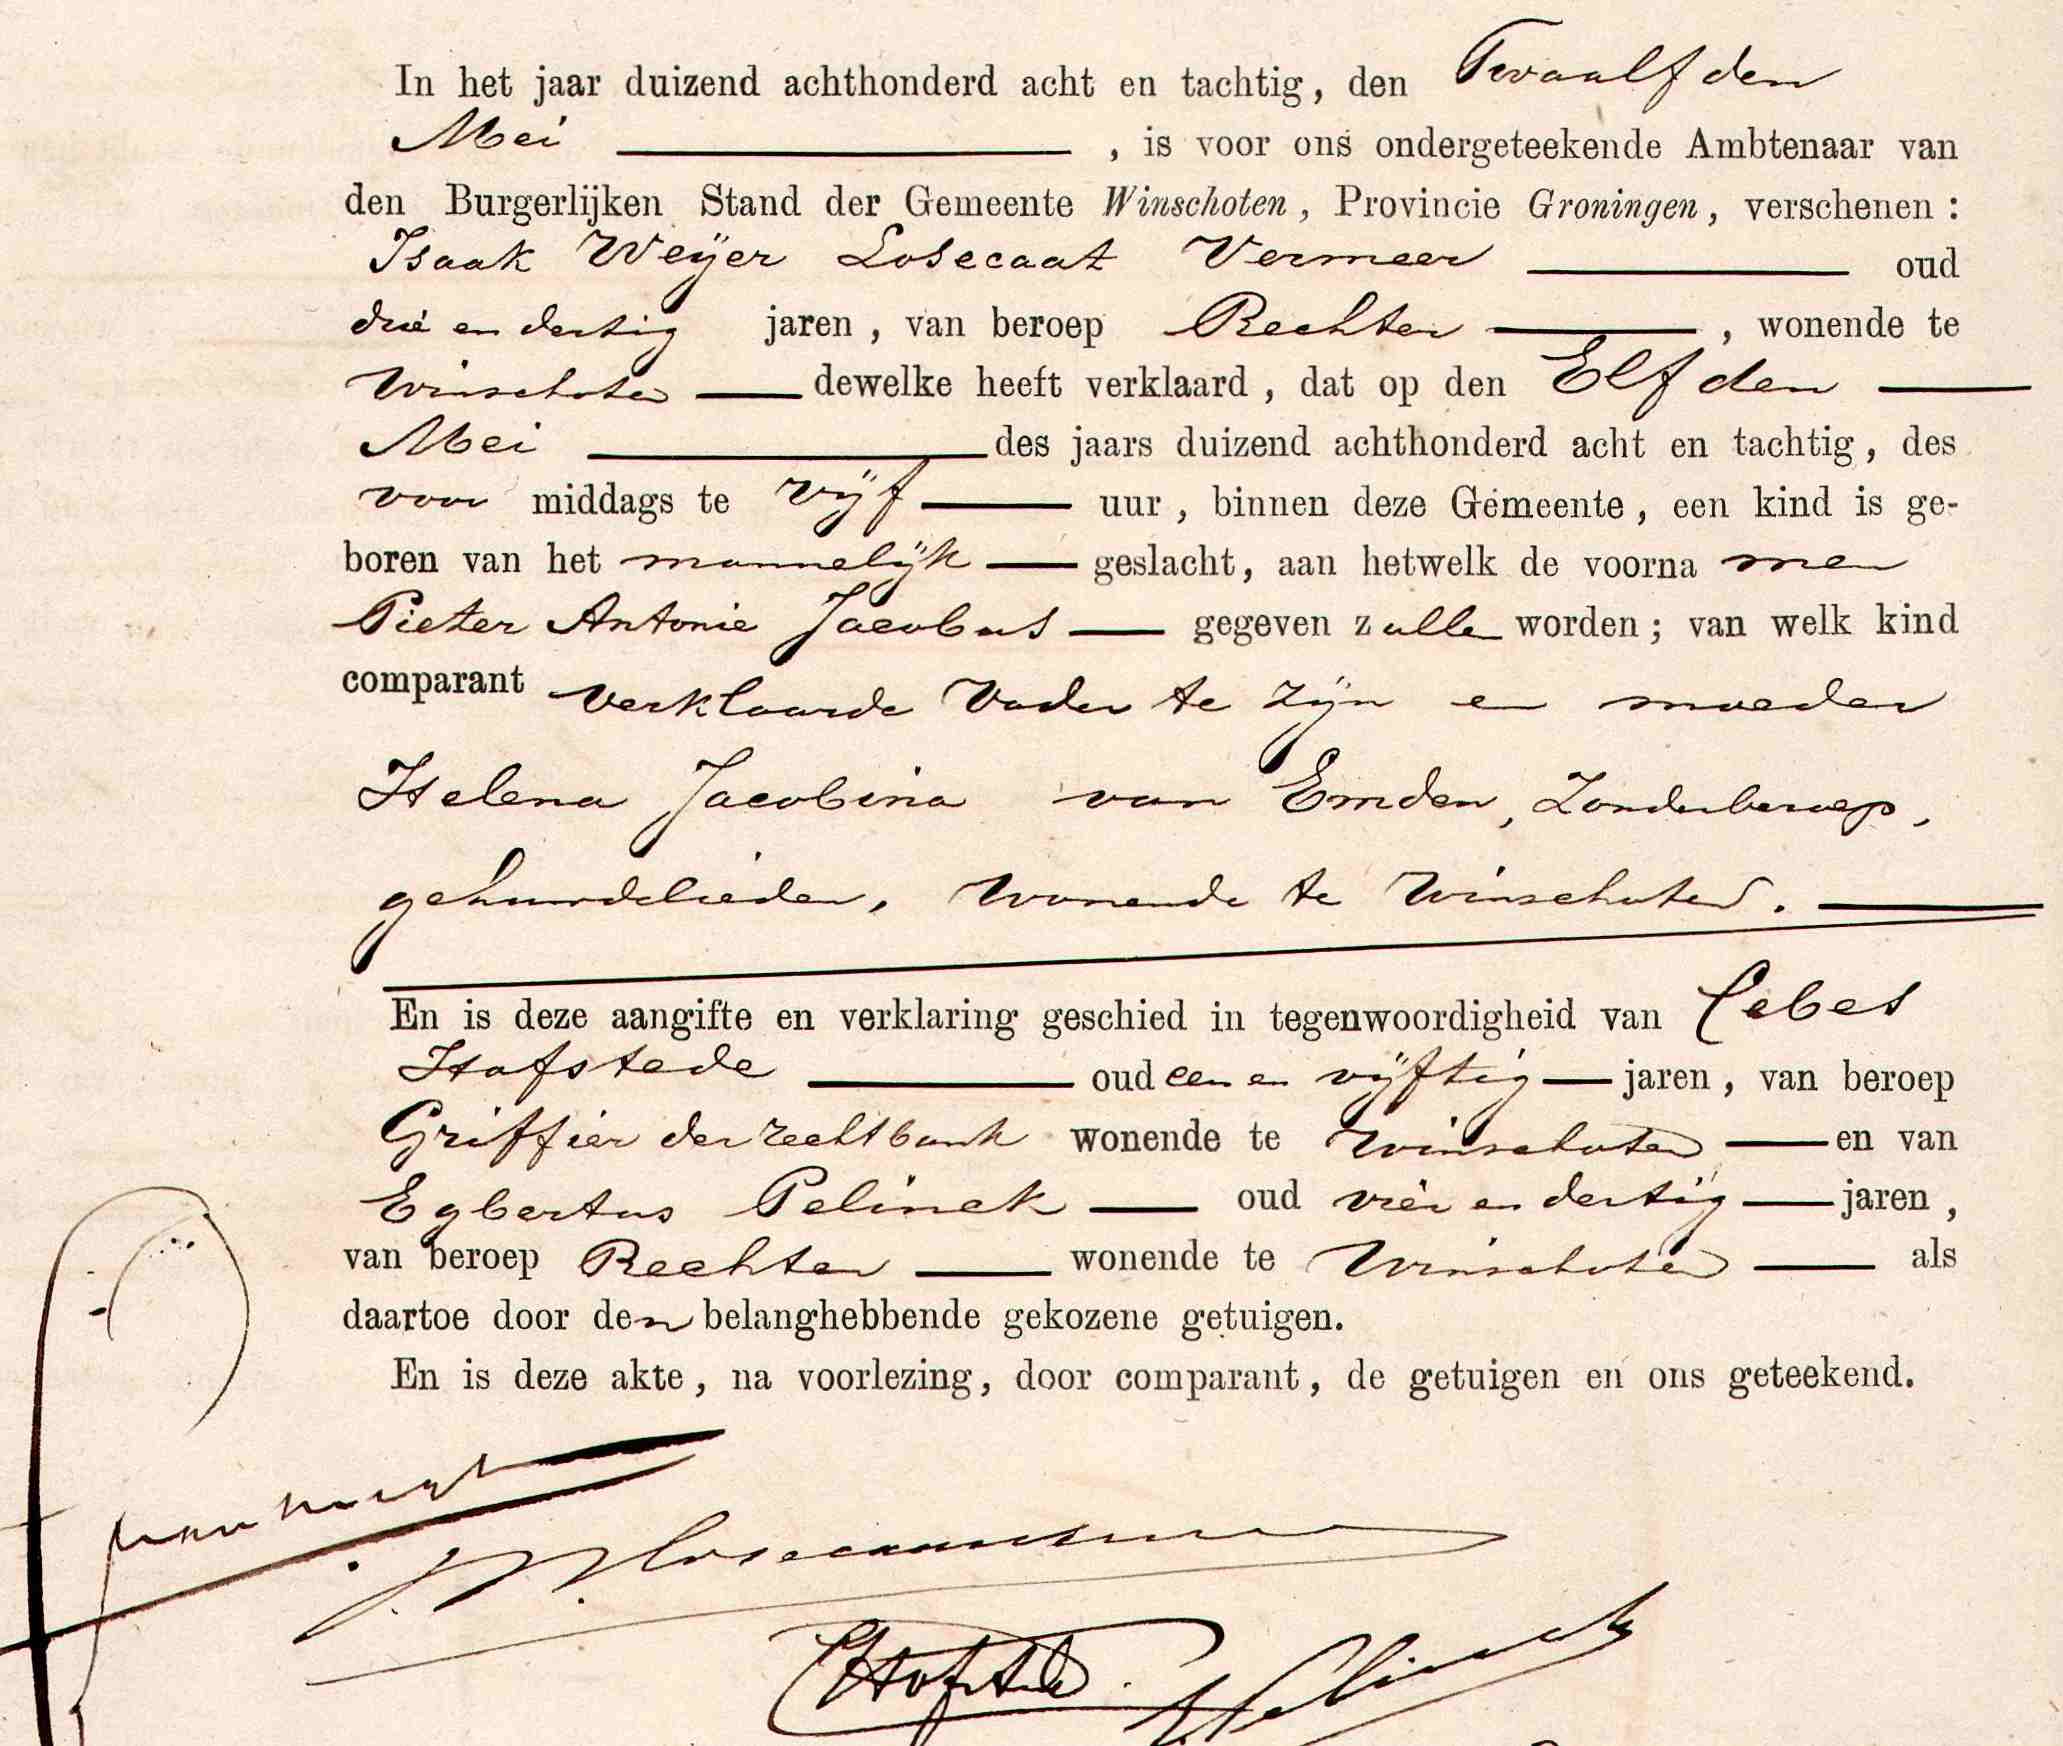 In het jaar duizend achthonderd acht en tachtig, den Twaalfden
Mei , is voor ons ondergeteekende Ambtenaar van
den Burgerlijken Stand der Gemeente Winschoten, Provincie Groningen, verschenen:
Isaak Weijer Losecaat Vermeer oud
drie en dertig jaren, van beroep Rechter , wonende te
Winschoten dewelke heeft verklaard, dat op den Elfden
Mei des jaars duizend achthonderd acht en tachtig, des
voor middags te vijf uur, binnen deze Gemeente, een kind is ge-
boren van het mannelijk geslacht, aan hetwelk de voorna men
Pieter Antonie Jacobus gegeven zullen worden; van welk kind
comparant verklaarde Vader te zijn en moeder
Helena Jacobina van Emden, Zonder beroep,
gehuwdelieden, Wonende te Winschoten.
En is deze aangifte en verklaring geschied in tegenwoordigheid van Cebes
Hofstede oud een en vijftig jaren, van beroep
Griffier der rechtbank wonende te Winschoten en van
Egbertus Pelinck oud vier en dertig jaren,
van beroep Rechter wonende te Winschoten als
daartoe door den belanghebbende gekozene getuigen.
En is deze akte, na voorlezing, door comparant, de getuigen en ons geteekend.
CHofstede
Pelinck